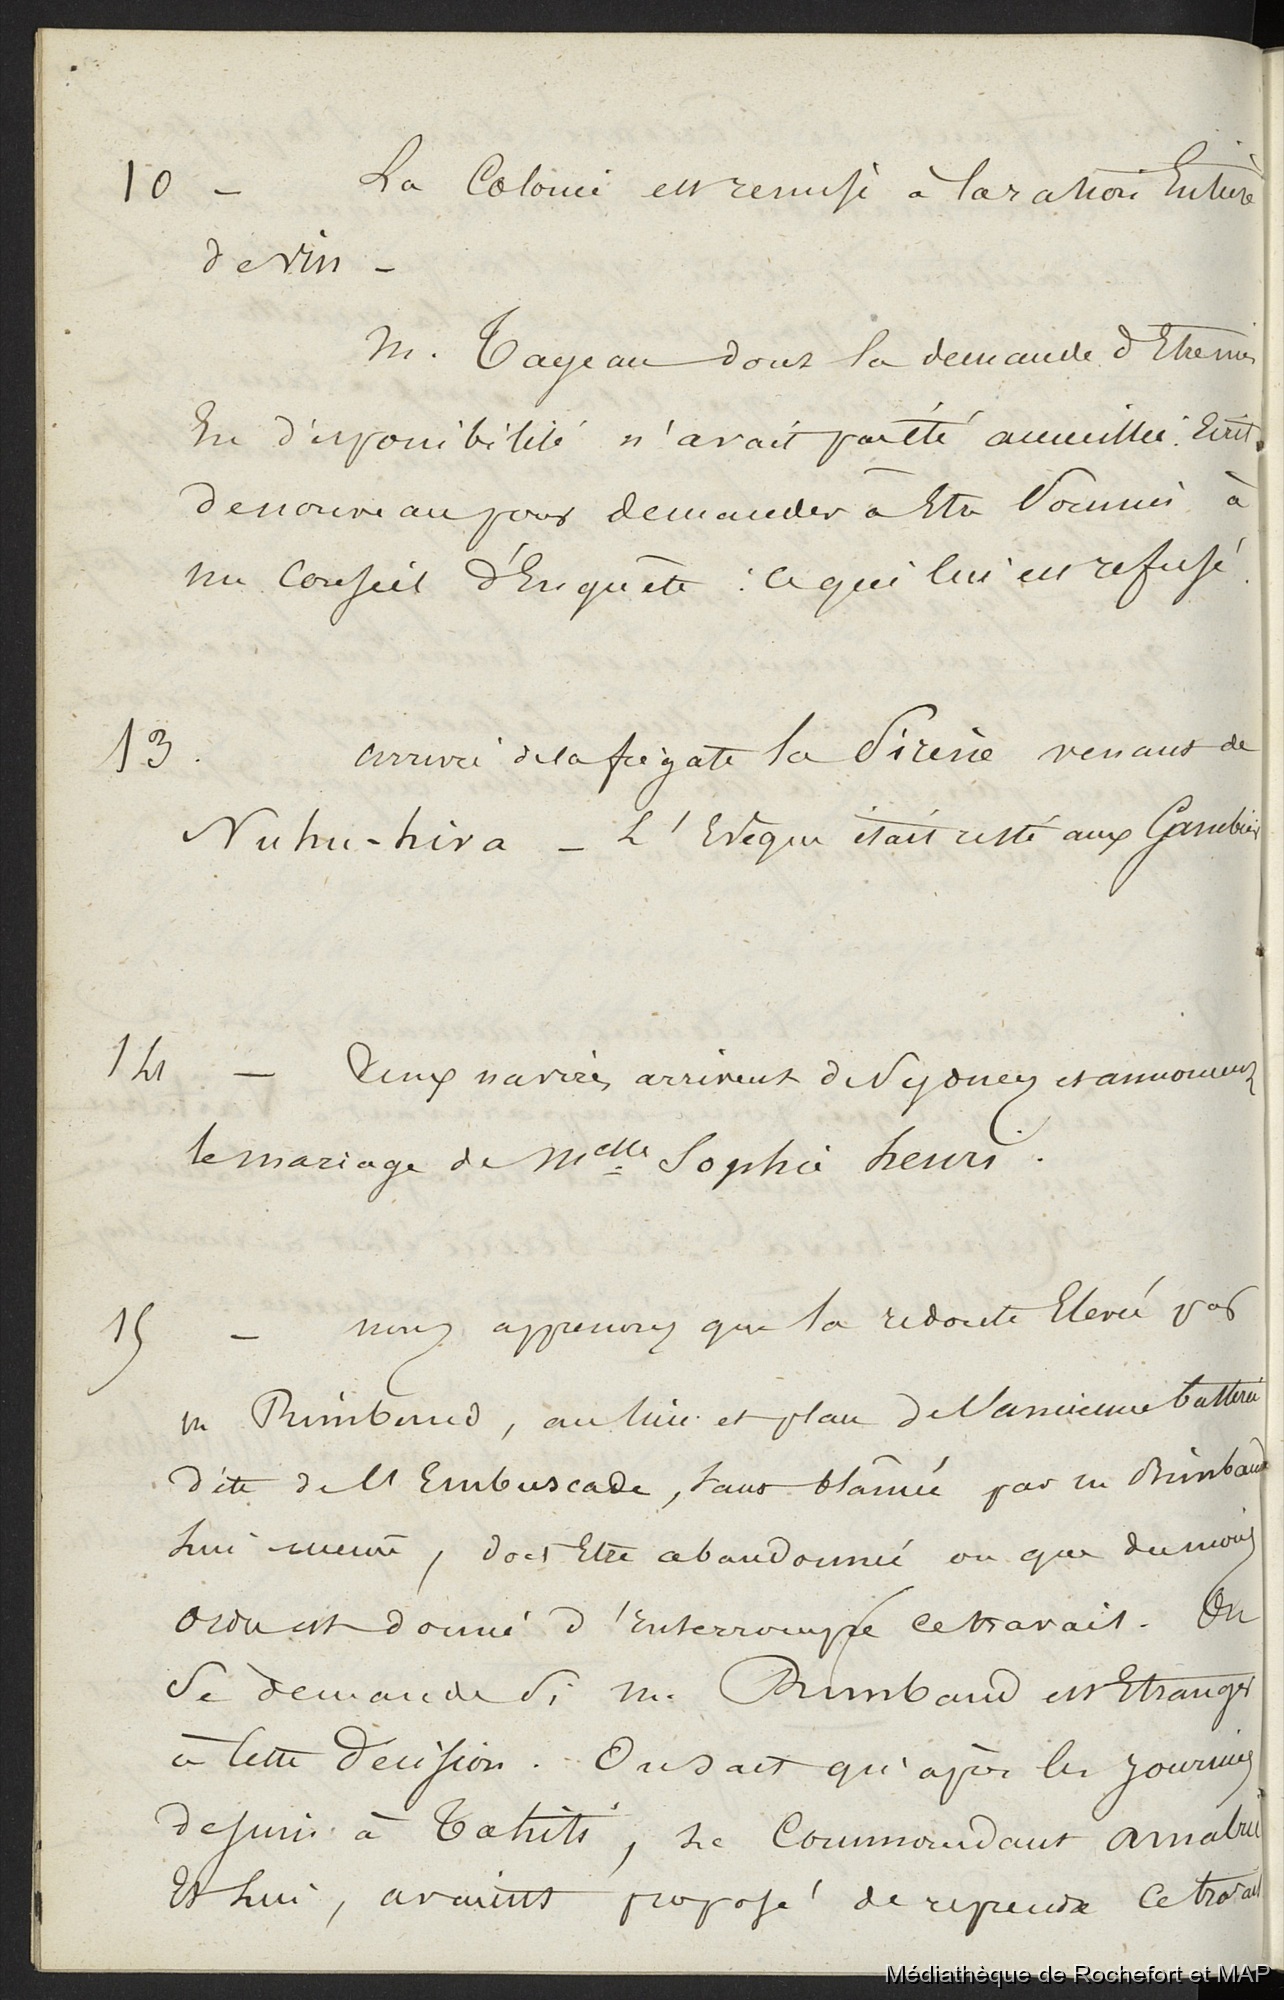 10 - La Colonie est remise à la ration Entière
de vin -
M. Tageau dont la demande d'Etre mis
En disponibilité n'avait pas été accueillie. Ecrit
de nouveau pour demander à Etre soumis à
un Conseil d'Enquête : ce qui lui est refusé.
13. arrivée de la frégate la Sirène venant de
Nuhu-hiva - L'Evêque était resté aux Gambier
14 - Deux navires arrivent de Sydney et annoncent
le mariage de Melle Sophie henri.
15 - nous apprenons que la redoute Elevée par
m Rimbaud, au lieu et place de l'ancienne batterie
dite de l'Embuscade, tant blâmée par m Rimbaud
lui même, doit Etre abandonnée ou que du moins
ordre est donné d'Enterrompre ce travail. On
se demande si m. Rimbaud est Etranger
à cette décision. On sait qu'après les journées
de juin à Tahiti, le Commandant amabric
Et lui, avaient proposé de reprendre ce travail
Médiathèque de Rochefort et MAP